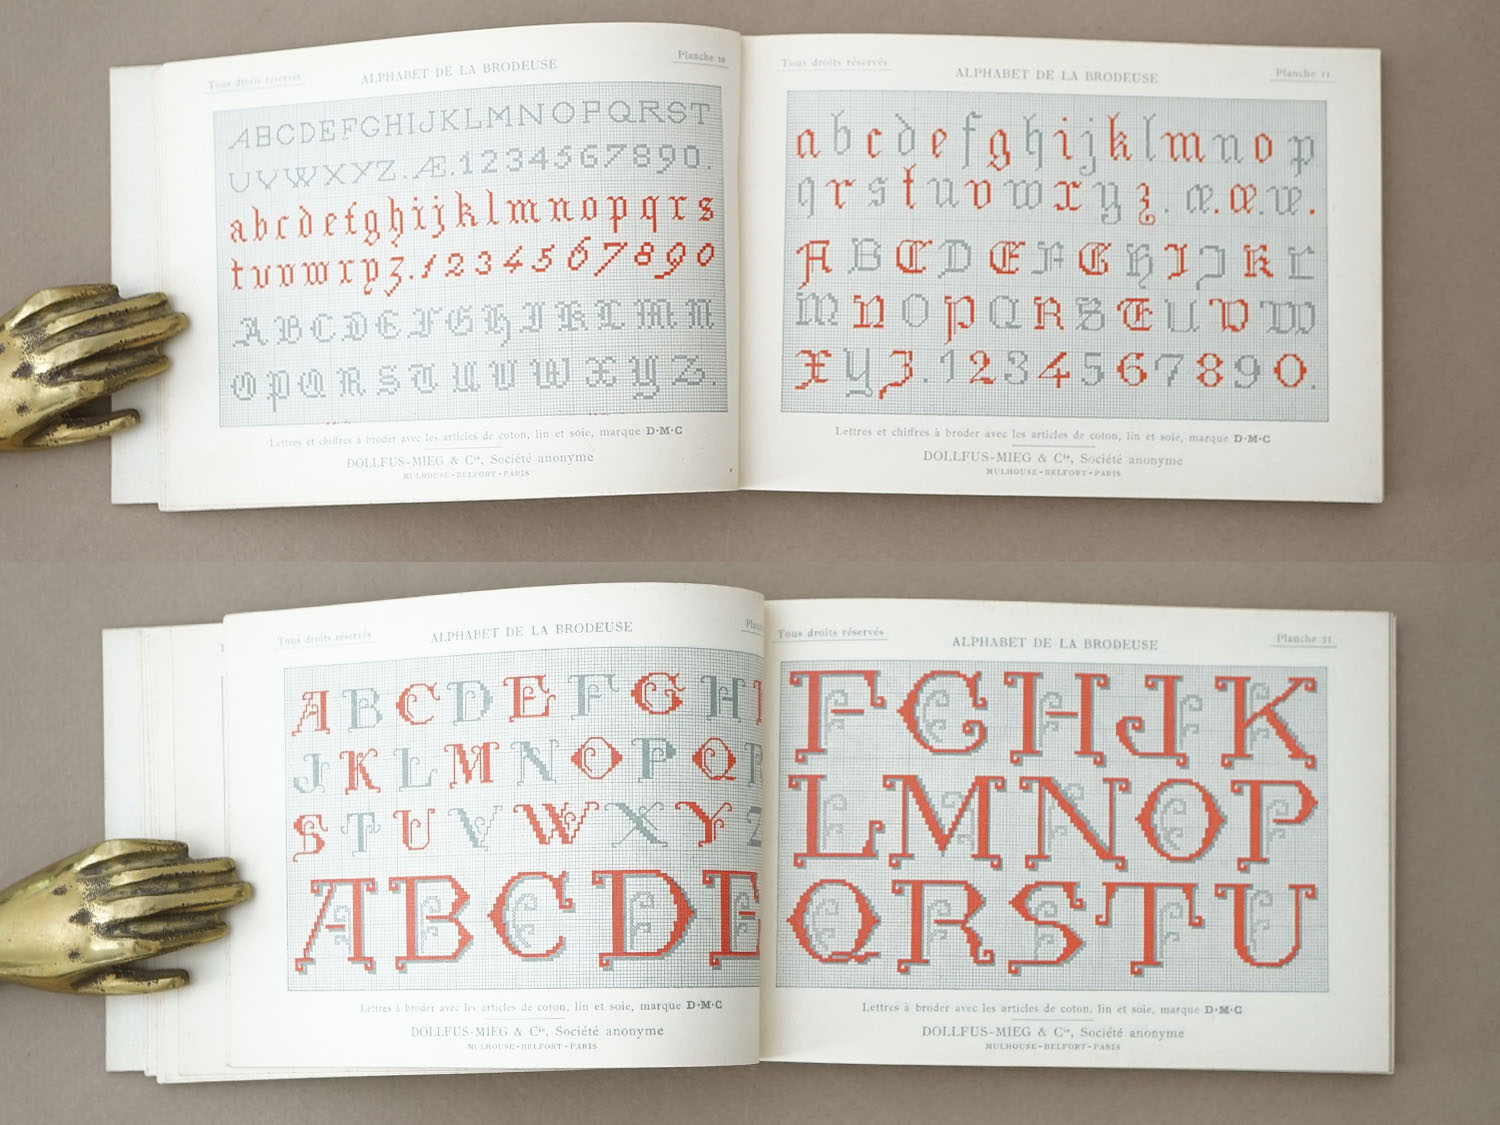 Tous droits réservés
ALPHABET DE LA BRODEUSE
Planche 10
ABCDEFGHIJKLMNOPQRST
UVWXYZ.Æ.1234567890.
abcdefghijklmnopqrs
tuvwxyz.1234567890
ABCDEFGHIKLMN
OPQRSTUVWXYZ.
Lettres et chiffres à broder avec les articles de coton, lin et soie, marque D·M·C
DOLLFUS-MIEG & Cie, Société anonyme
MULHOUSE-BELFORT-PARIS
Tous droits réservés
ALPHABET DE LA BRODEUSE
Planche 11
abcdefghijklmnop
qrstuvwxyz.æ.œ.
ABCDEFGHIJKL
MNOPQRSTUVW
XYZ.1234567890.
Lettres et chiffres à broder avec les articles de coton, lin et soie, marque D·M·C
DOLLFUS-MIEG & Cie, Société anonyme
MULHOUSE-BELFORT-PARIS
Tous droits réservés
ALPHABET DE LA BRODEUSE
ABCDEFGH
JKLMNOPQ
STUVWXYZ
ABCDE
Lettres à broder avec les articles de coton, lin et soie, marque D·M·C
DOLLFUS-MIEG & Cie, Société anonyme
MULHOUSE-BELFORT-PARIS
Tous droits réservés
ALPHABET DE LA BRODEUSE
Planche 21
FGHJK
LMNOP
QRSTU
Lettres à broder avec les articles de coton, lin et soie, marque D·M·C
DOLLFUS-MIEG & Cie, Société anonyme
MULHOUSE-BELFORT-PARIS